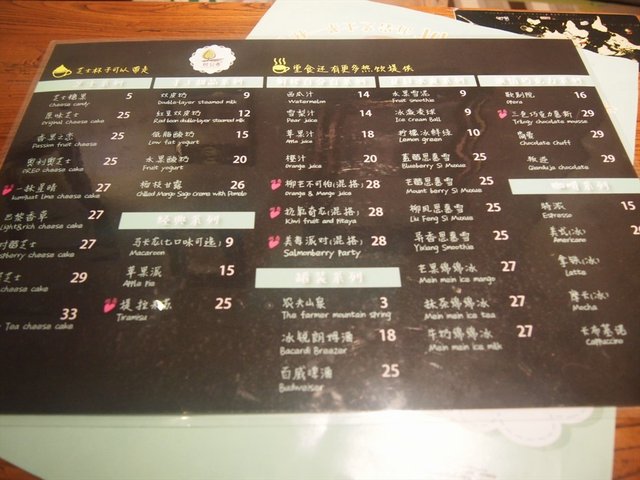 芝士杯子可以带走
芝士糖果 5
Cheese candy
原味芝士 25
Original cheese cake
25
Passion fruit cheese
奥利奥芝士 25
OREO cheese cake
一抹星晴 27
kumquat lime cheese cake
27
Light&rich cheese cake
27
cheese cake
29
cheese cake
33
Tea cheese cake
双皮奶 9
Double-layer steamed milk
红豆双皮奶 12
Red bean double-layer steamed milk
低脂酸奶 15
Low fat yogurt
水果酸奶 20
Fruit yogurt
杨枝甘露 26
Chilled Mango Sago Crema with Pomelo
经典系列
马卡龙(七口味可选) 9
Macaroon
苹果派 15
Apple Pie
提拉米苏 25
Tiramisu
里食还有更多热饮提供
西瓜汁 14
Watermelon
雪梨汁 14
Pear juice
苹果汁 18
Apple juice
橙汁 20
Orange juice
柳芒不可怕(混搭) 28
Orange & Mango juice
28
Kiwi fruit and Pitaya
美莓派对(混搭) 28
Salmonberry Party
瓶装系列
农夫山泉 3
The farmer mountain string
冰锐朗姆酒 18
Bacardi Breezer
百威啤酒 25
Budweiser
水果雪泥 9
Fruit smoothie
冰盒凌球 9
Ice Cream Ball
柠檬冰鲜绿 10
Lemon green
蓝莓思慕雪 20
Blueberry Si Muxue
芒莓思慕雪 20
Mount berry Si Muxue
柳凤思慕雪 20
Liu Feng Si Muxue
异香思慕雪 20
Yixiang Smoothie
芒果绵绵冰 27
Mein mein ice mango
抹茶绵绵冰 27
Mein mein ice tea
牛奶绵绵冰 27
Mein mein ice milk
歌剧院 16
Opera
三色巧克力慕斯 29
Trilogy chocolate mousse
29
Chocolate Chuff
29
Gianduja chocolate
咖啡系列
特浓 15
Espresso
美式(冰)
Americano
拿铁(冰)
Latte
摩卡(冰)
Mocha
卡布基诺
Cappuccino